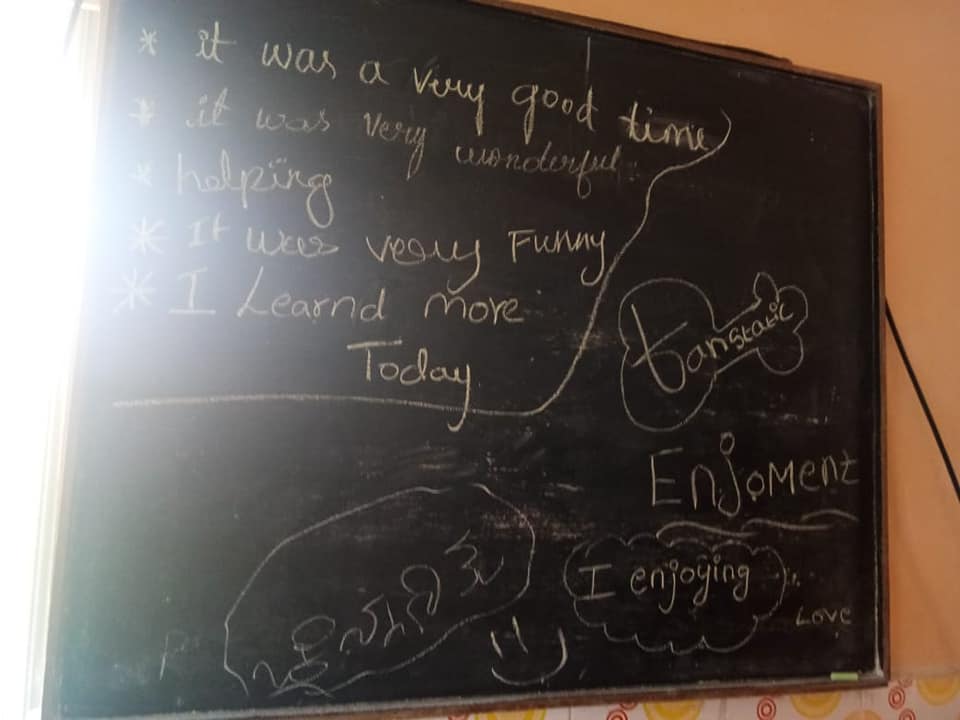 * it was a very good time
* it was very wonderful
* helping
* It was very Funny
* I Learnd more
Today
tanstatic
EnjoMent
I enjoying
Love